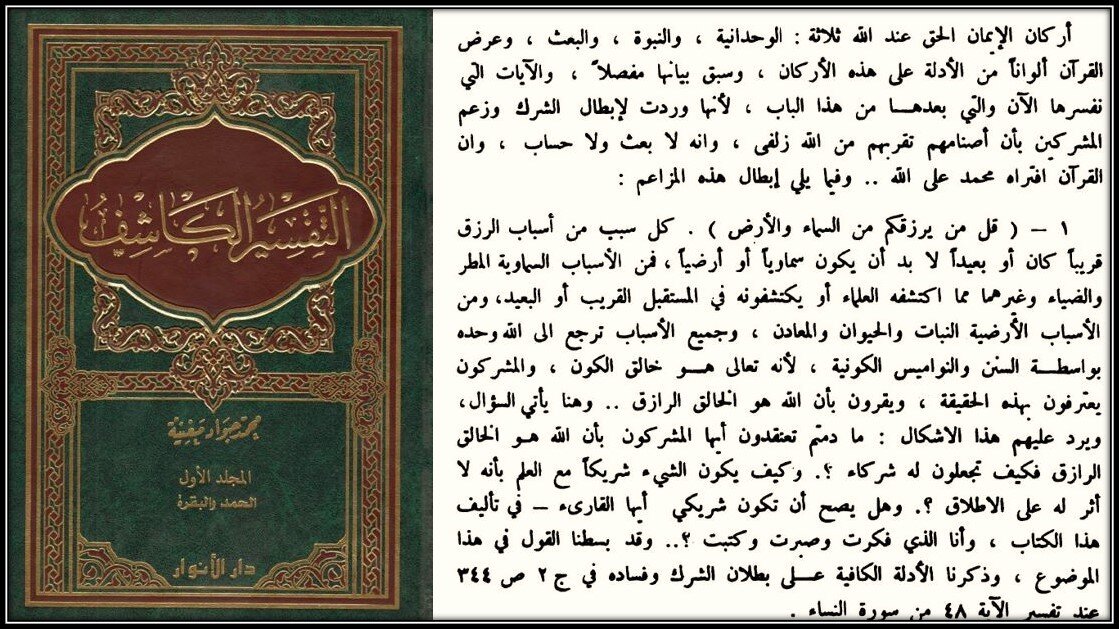 التفسير الكاشف
محمد جواد مغنية
المجلد الأول
الحمد والبقرة
دار الأنوار
أركان الإيمان الحق عند الله ثلاثة : الوحدانية ، والنبوة ، والبعث ، وعرض
القرآن ألواناً من الأدلة على هذه الأركان ، وسبق بيانها مفصلاً ، والآيات التي
نفسرها الآن والتي بعدهـا من هذا الباب ، لأنها وردت لإبطال الشرك وزعم
المشركين بأن أصنامهم تقربهم من الله زلفى ، وانه لا بعث ولا حساب ، وان
القرآن افتراه محمد على الله .. وفيما يلي إبطال هذه المزاعم :
١ – ( قل من يرزقكم من السماء والأرض ) . كل سبب من أسباب الرزق
قريباً كان أو بعيداً لا بد أن يكون سماوياً أو أرضياً ، فمن الأسباب السماوية المطر
والضياء وغيرهما مما اكتشفه العلماء أو يكتشفونه في المستقبل القريب أو البعيد، ومن
الأسباب الأرضية النبات والحيوان والمعادن ، وجميع الأسباب ترجع الى الله وحده
بواسطـة السنن والنواميس الكونية ، لأنه تعالى هـو خالق الكون ، والمشركون
يعترفون بهذه الحقيقة ، ويقرون بأن الله هو الخالق الرازق .. وهنا يأتي السؤال،
ويرد عليهم هذا الاشكال : ما دمتم تعتقدون أيها المشركون بأن الله هـو الخالق
الرازق فكيف تجعلون له شركاء ؟. وكيف يكون الشيء شريكاً مع العلم بأنه لا
أثر له على الاطلاق ؟. وهل يصح أن تكون شريكي أيها القارىء – في تأليف
هذا الكتاب ، وأنا الذي فكرت وصبرت وكتبت ؟.. وقد بسطنا القول في هذا
الموضوع ، وذكرنا الأدلة الكافية عـلى بطلان الشرك وفساده في ج ٢ ص ٣٤٤
عند تفسير الآية ٤٨ من سورة النساء .